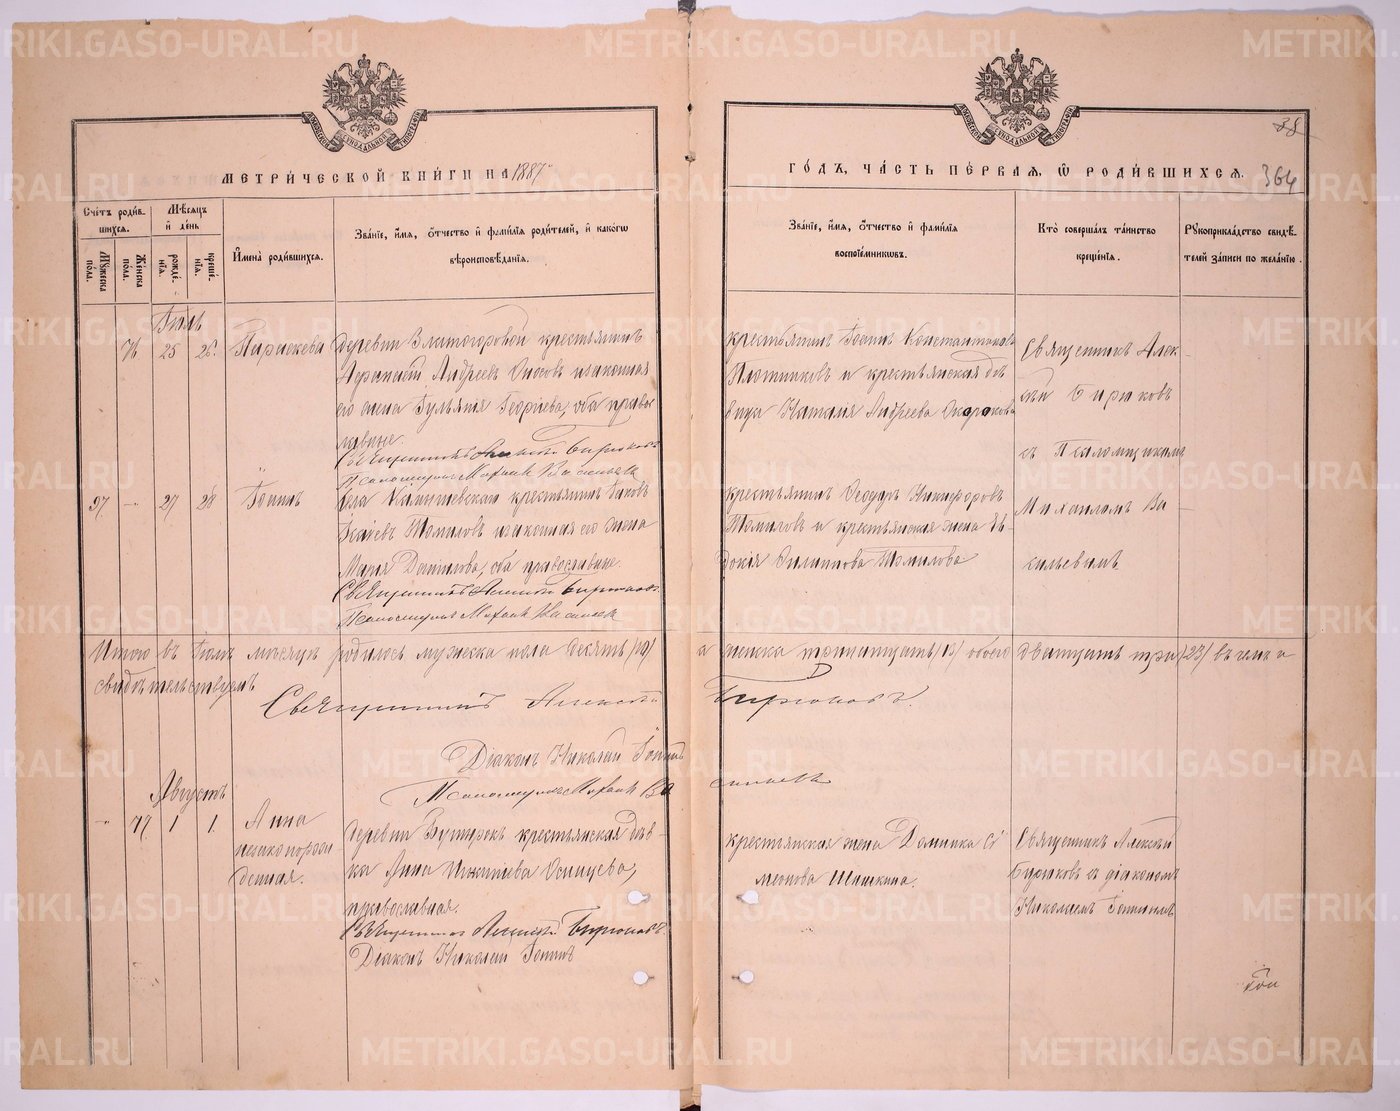 МЕТРИ́ЧЕСКОЙ КНИ́ГИ НА 1887
ГО́ДЪ, ЧА́СТЬ ПЕ́РВАЯ, Ѿ РОДИ́ВШИХСЯ.
38
364
Сче́тъ роди́в-
шихся.
Мѣ́сяцъ
и де́нь
Му́жеска
по́ла.
Же́нска
по́ла.
рожде́-
нія.
креще́-
нія.
И҆мена̀ роди́вшихся.
Зва́ніе, и҆́мя, ѻ҆́тчество и҆ фами́лія роди́телей, и҆ како́гѡ
вѣроисповѣ́данія.
Зва́ніе, и҆́мя, ѻ҆́тчество и҆ фами́лія
воспріе́мникѡвъ.
Кто̀ соверша́лъ та́инство
креще́нія.
Рꙋкоприкла́дство свидѣ́-
телей за́писи по жела́нію.
Іюль
76 25 26. Параскева
деревни Златогоровой крестьянинъ
Афанасій Андреевъ Оносовъ и законная
его жена Іуліанія Георгіева, оба право
славные.
Священникъ Алексій Бирюковъ
Псаломщикъ Михаил Васильевъ
крестьянинъ Іоаннъ Константиновъ
Плотниковъ и крестьянская дѣ
вица Наталія Андреева Скорокова
Священникъ Алек-
сѣй Бирюковъ
съ Псаломщикомъ
Михаиломъ Ва
сильевымъ
97. 27 28 Іоаннъ
села Камышевскаго крестьянинъ Іаковъ
Исаіевъ Томиловъ и законная его жена
Марія Данилова, оба православные.
Священникъ Алексій Бирюковъ
Псаломщикъ Михаил Васильевъ
крестьянинъ Ѳеодоръ Никифоровъ
Томиловъ и крестьянская жена Ев-
докія Филиппова Томилова
Итого въ Іюлѣ мѣсяцѣ родилось мужеска пола десять /10/
а женска тринатцать /13/ обоего двадцать три /23/ въ чемъ и
свидѣтельствуемъ
Священникъ Алексій
Бирюковъ.
Діаконъ Николай Топинъ
Псаломщикъ Михаил Ва
сильевъ
Августъ
77. 1 1. Анна
незаконорож
денная.
деревни Бутырокъ крестьянская дѣв-
ка Анна Никитина Осинцева,
православная.
Священникъ Алексій Бирюковъ
Діаконъ Николай Топинъ
крестьянская жена Домника Си
меонова Шашкина.
Священникъ Алексій
Бирюковъ съ діакономъ
Николаемъ Топинымъ
METRIKI.GASO-URAL.RU